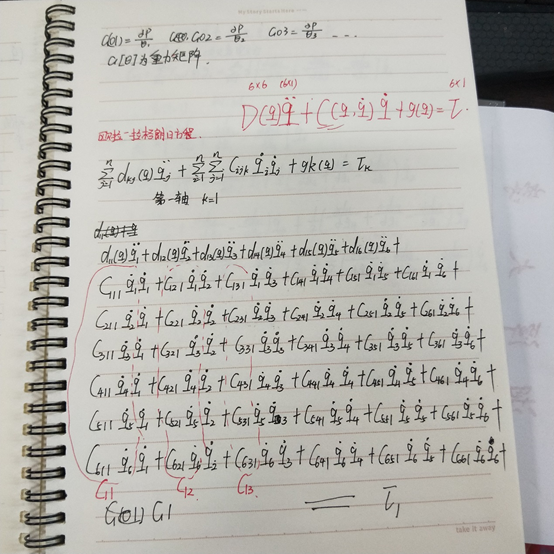 G(θ1) = ∂P/θ1  G02 = ∂P/θ2  G03 = ∂P/θ3 ...
G[θ]为重力矩阵.
6×6 (6×1) 6×1
D(q)q̈ + C(q,q̇)q̇ + g(q) = τ.
欧拉-拉格朗日方程.
Σⁿⱼ₌₁ dkj(q)q̈j + Σⁿᵢ₌₁ Σⁿⱼ₌₁ Cijk q̇i q̇j + gk(q) = τk
第一轴 k=1
d11(q)q̈1 + d12(q)q̈2 + d13(q)q̈3 + d14(q)q̈4 + d15(q)q̈5 + d16(q)q̈6 +
C111 q̇1q̇1 + C121 q̇1q̇2 + C131 q̇1q̇3 + C141 q̇1q̇4 + C151 q̇1q̇5 + C161 q̇1q̇6 +
C211 q̇2q̇1 + C221 q̇2q̇2 + C231 q̇2q̇3 + C241 q̇2q̇4 + C251 q̇2q̇5 + C261 q̇2q̇6 +
C311 q̇3q̇1 + C321 q̇3q̇2 + C331 q̇3q̇3 + C341 q̇3q̇4 + C351 q̇3q̇5 + C361 q̇3q̇6 +
C411 q̇4q̇1 + C421 q̇4q̇2 + C431 q̇4q̇3 + C441 q̇4q̇4 + C451 q̇4q̇5 + C461 q̇4q̇6 +
C511 q̇5q̇1 + C521 q̇5q̇2 + C531 q̇5q̇3 + C541 q̇5q̇4 + C551 q̇5q̇5 + C561 q̇5q̇6 +
C611 q̇6q̇1 + C621 q̇6q̇2 + C631 q̇6q̇3 + C641 q̇6q̇4 + C651 q̇6q̇5 + C661 q̇6q̇6 +
C11 C12 C13
G1 = τ1
take it away